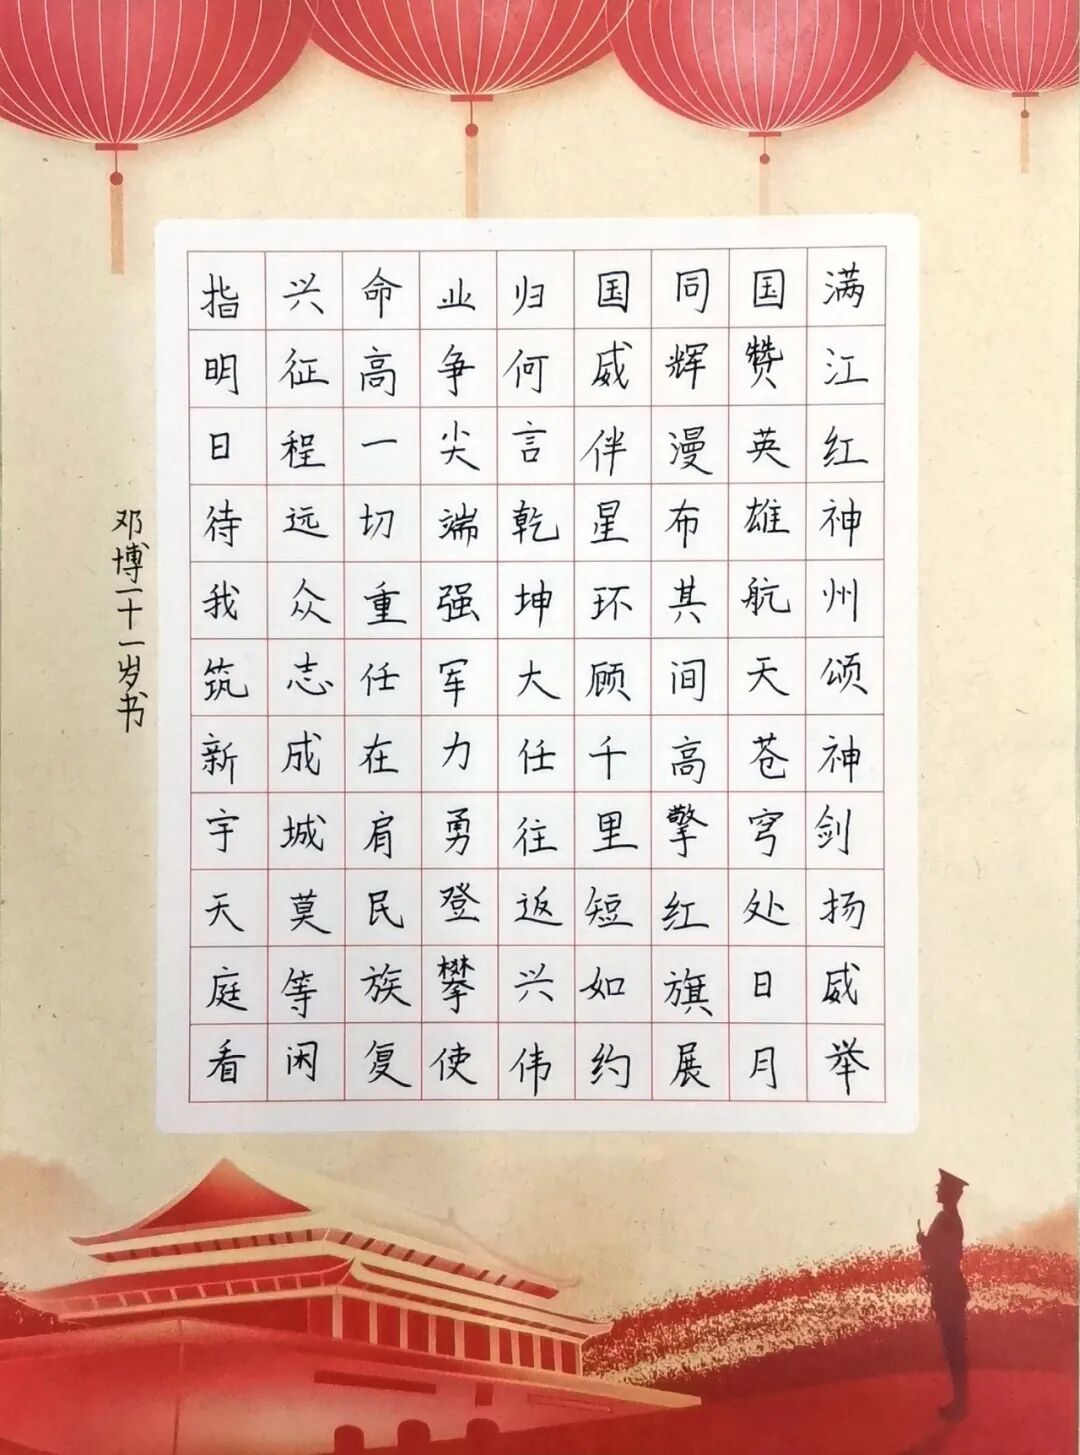 满江红神州颂神剑扬威举
国赞英雄航天苍穹处日月
同辉漫布其间高擎红旗展
国威伴星环顾千里短如约
归何言乾坤大任往返兴伟
业争尖端强军力勇登攀使
命高一切重任在肩民族复
兴征程远众志成城莫等闲
指明日待我筑新宇天庭看
邓博一十一岁书